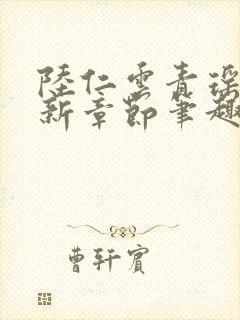 陸仁雲青瑤
新章節筆趣
曹軒賓